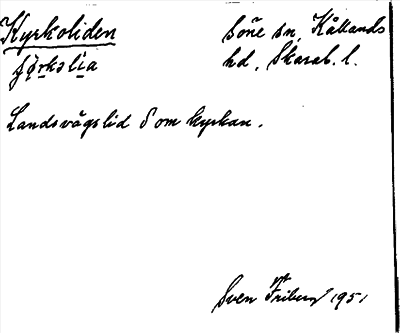 Kyrkoliden Söne sn, Kållands
ɟørkəlia hd, Skarab. l.
Landsvägslid S om kyrkan.
Sven Friberg 1951